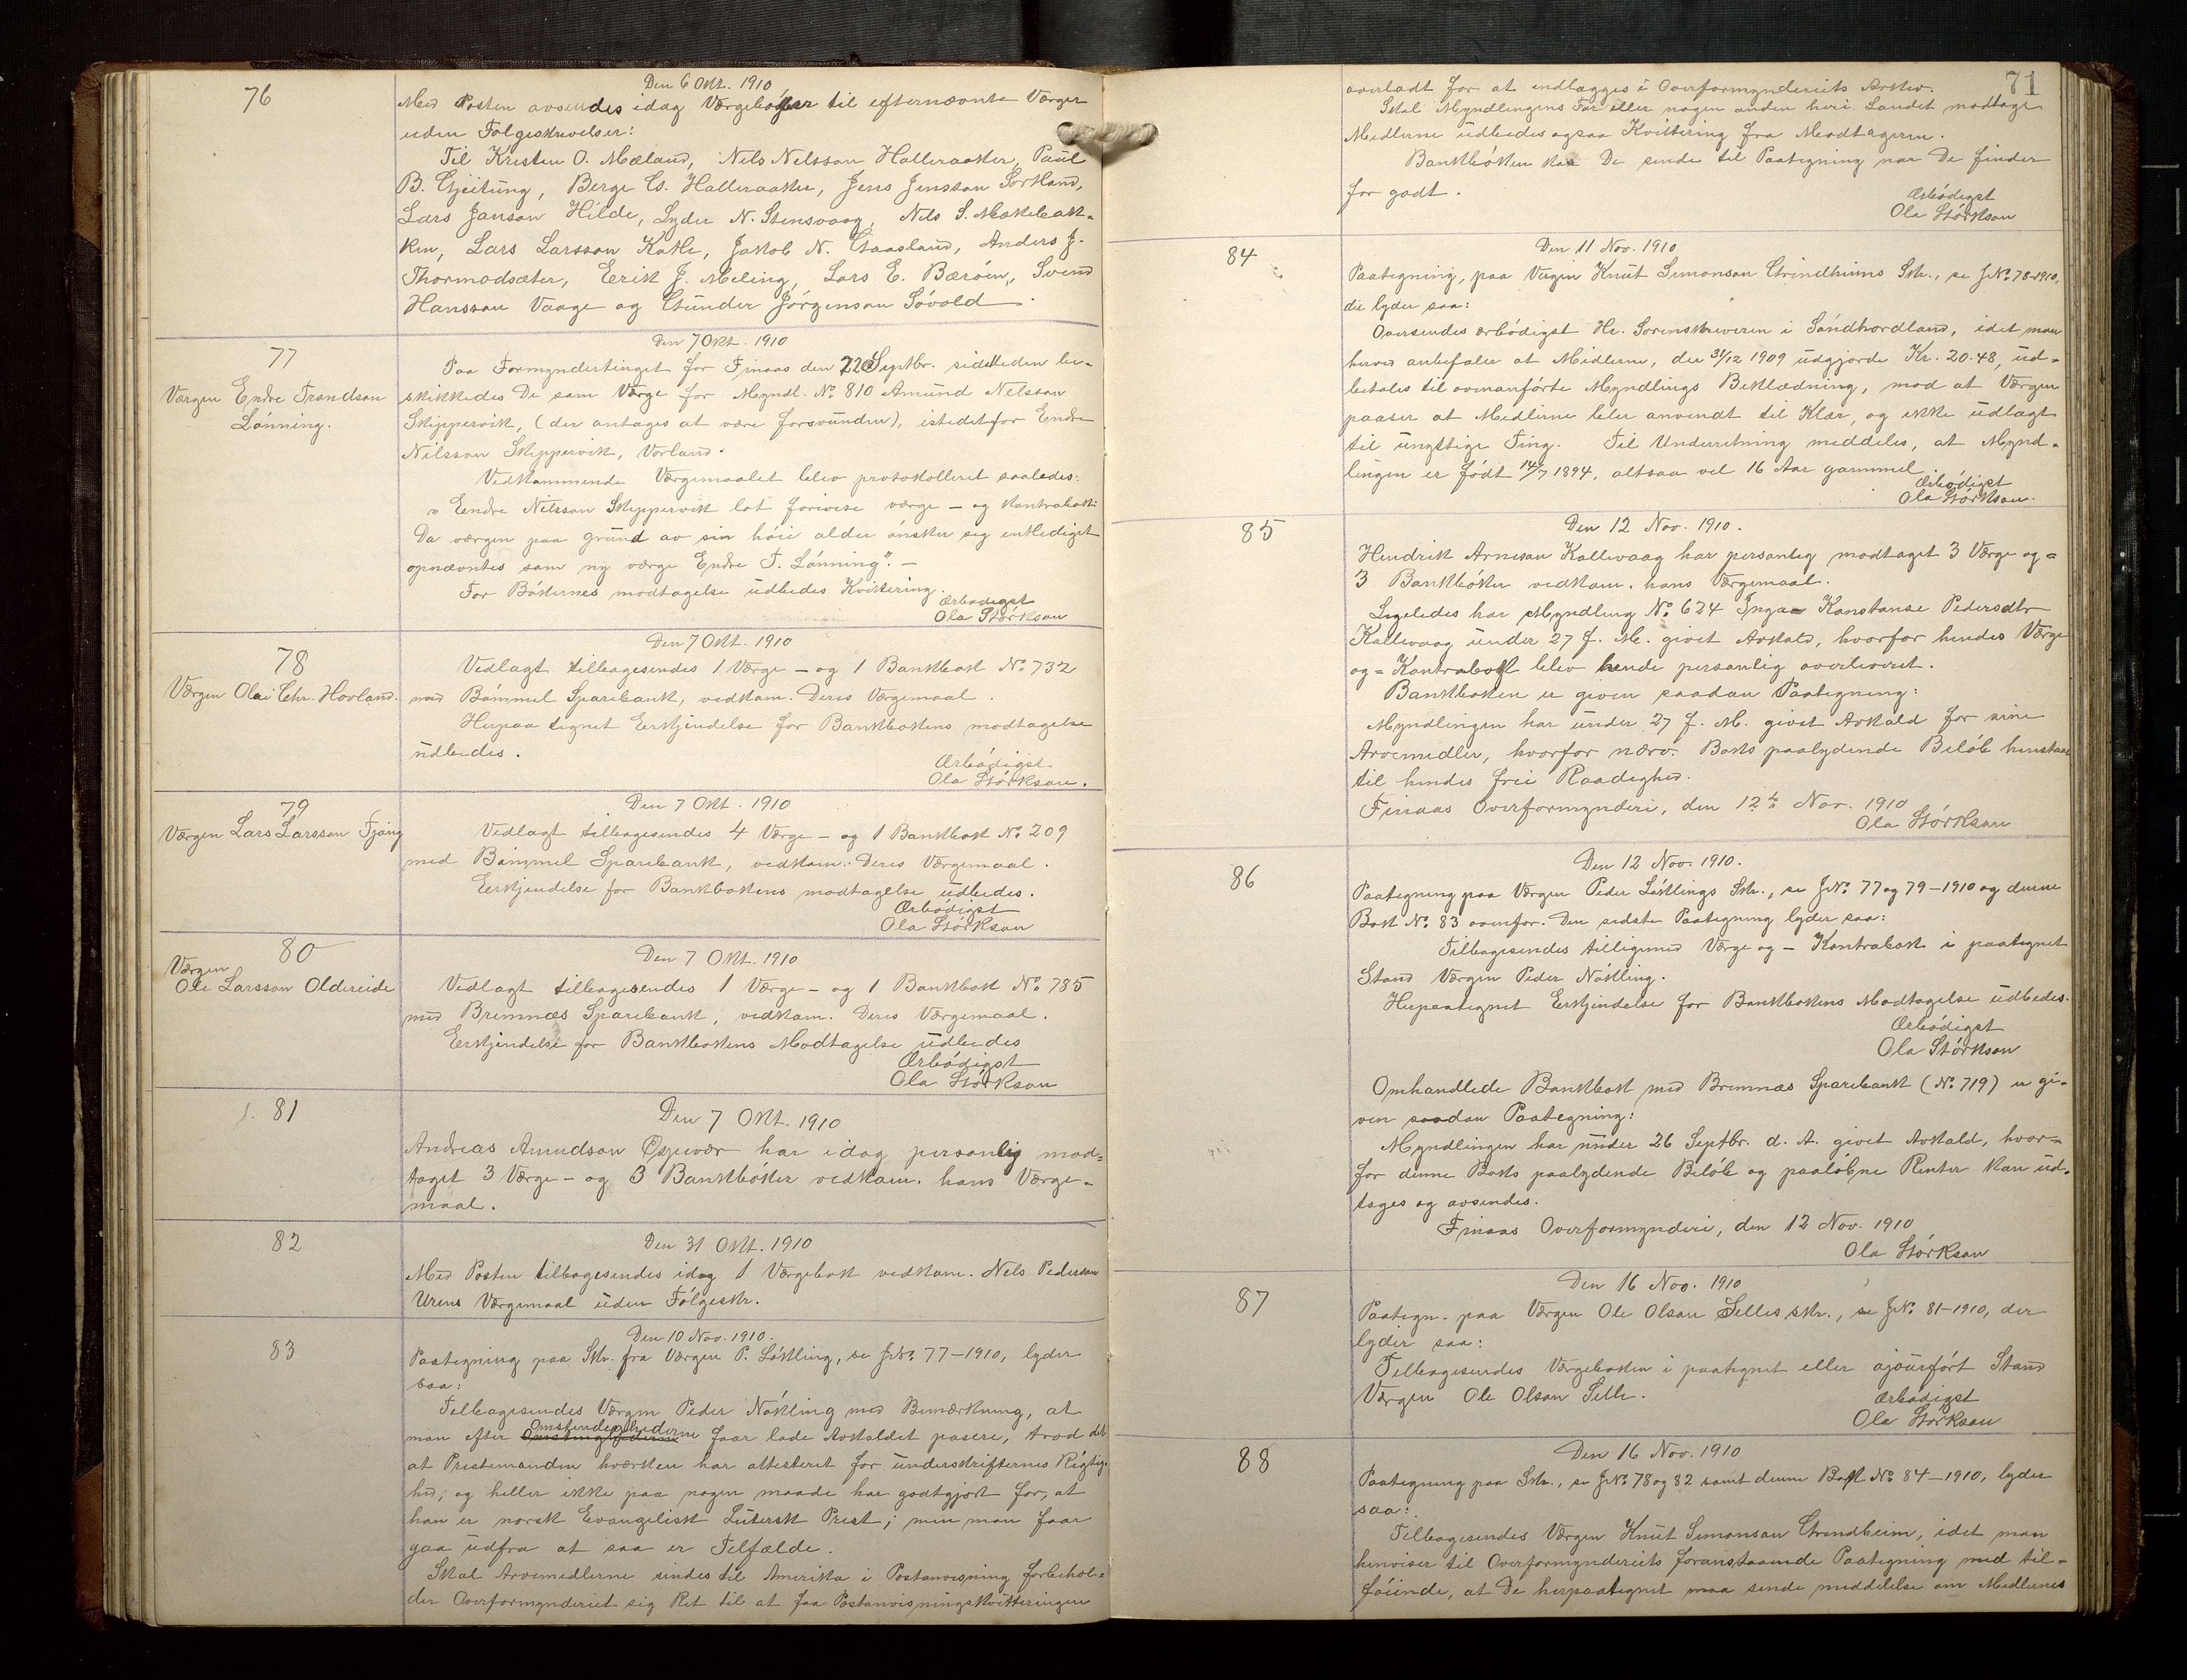 76
Den 6 Okt. 1910
Med Posten avsendes idag Værgebøker til efternævnte Værger
uden Følgeskrivelser:
Til Kristen O. Mæland, Nels Nelsson Halleraaker, Paul
B. Gjeitung, Berge Halleraaker, Jens Jensson Sortland,
Lars Janson Hilde, Lyder N. Stensvaag, Nels S. Mækebak-
ken, Lars Larsson Katle, Jakob N. Gaasland, Anders J.
Thormodsæter, Eerik J. Meling, Lars E. Bærøen, Svend
Hansson Vaage og Gunder Jørgenson Søvold.
77
Værgen Endre Trondson
Lønning.
Den 7 Okt. 1910
Paa Formyndertinget for Finaas den 22 Septbr. sidstleden be-
skikkedes De som Værge for Myndl. No. 810 Amund Nelsson
Skippervik, (der antages at være forsvunden), istedetfor Endre
Nilsson Skippervik, Vorland.
Vedkommende Værgemaalet blev protokolleret saaledes:
"Eendre Nilsson Skippervik lot forevise værge - og kontrabok.
Da værgen paa grund av sin høie alder ønsker sig entlediget
opnævntes som ny værge Endre T. Lønning". -
For Bøkernes modtagelse udbedes Kvittering.
Ærbødigst
Ola Størkson
78
Værgen Olai Chr. Hovland.
Den 7 Okt. 1910
Vedlagt tilbagesendes 1 Værge - og 1 Bankbok No. 732
med Bømmel Sparebank, vedkom. Deres Værgemaal.
Herpaa tegnet Eerkjendelse for Bankbokens modtagelse
udbedes.
Ærbødigst
Ola Størkson.
79
Værgen Lars Larsson Tjong
Den 7 Okt. 1910
Vedlagt tilbagesendes 4 Værge - og 1 Bankbok No. 209
med Bømmel Sparebank, vedkom. Deres Værgemaal.
Eerkjendelse for Bankbokens modtagelse udbedes.
Ærbødigst
Ola Størkson
80
Værgen
Ole Larsson Oldereide
Den 7 Okt. 1910
Vedlagt tilbagesendes 1 Værge - og 1 Bankbok No. 785
med Bremnæs Sparebank, vedkom. Deres Værgemaal.
Eerkjendelse for Bankbokens Modtagelse udbedes
Ærbødigst
Ola Størkson
81
Den 7 Okt. 1910
Andreas Amundson Espevær har idag personlig mod-
taget 3 Værge - og 3 Bankbøker vedkom. hans Værge-
maal.
82
Den 31 Okt. 1910
Med Posten tilbagesendes idag 1 Værgebok vedkom. Nels Pederson
Urens Værgemaal uden Følgeskr.
83
Den 10 Nov. 1910.
Paategning paa Skr. fra Værgen P. Løkling, se J.No. 77-1910, lyder
saa:
Tilbagesendes Værgen Peder Nøkling med Bemærkning, at
man efter Omstendighederne faar lade Avkaldet pasere, trod det
at Prestemanden hværken har attesteret for underskrifternes Rigtig-
hed, og heller ikke paa nogen maade har godtgjort for, at
han er norsk Evangelisk Lutersk Prest; men man faar
gaa udfra at saa er Tilfælde.
Skal Arvemidlerne sendes til Amerika i Postanvisning forbehol-
der Overformynderiet sig Ret til at faa Postanvisningskvitteringen
71
overladt for at indlægges i Overformynderiets Arkiv.
Skal Myndlingens Far eller nogen anden heri Landet modtage
Midlerne udbedes ogsaa Kvittering fra Modtageren.
Bankbøken kan De sende til Paategning nar De finder
for godt.
Ærbødigst
Ola Størkson
84
Den 11 Nov. 1910
Paategning, paa Værgen Knut Simonson Grindheims Skr., se J.No. 78-1910,
der lyder saa:
Oversendes ærbødigst Hr. Sorenskriveren i Søndhordland, idet man
herved anbefaler at Midlerne, der 31/12 1909 udgjorde Kr. 20.48, ud-
betales til ovenanførte Myndlings Beklædning, mod at Værgen
paaser at Midlerne bler anvendt til Klær, og ikke udlagt
til unyttige Ting. Til Underretning meddeles, at Mynd-
lingen er født 14/7 1894, altsaa vel 16 Aar gammel.
Ærbødigst
Ola Størkson.
85
Den 12 Nov. 1910.
Hendrik Arneson Kallevaag har personlig modtaget 3 Værge og =
3 Bankbøker vedkom. hans Værgemaal.
Ligeledes har Myndling No. 624 Inga Konstanse Pedersdtr
Kallevaag under 27 f. M. givet Avkald, hvorfor hendes Værge
og = Kontrabok blev hende personlig overleveret.
Bankboken er given saadan Paategning:
Myndlingen har under 27 f. M. givet Avkald for sine
Arvemidler, hvorfor nærv. Boks paalydende Beløb henstaar
til hendes frie Raadighed.
Finaas Overformynderi, den 12te Nov. 1910
Ola Størkson
86
Den 12 Nov. 1910.
Paategning paa Værgen Peder Løklings Skr., se J.No. 77 og 79-1910 og denne
Bok No. 83 ovenfor. Den sidste Paategning lyder saa:
Tilbagesendes tilligemed Værge og - Kontrabok i paategnet
Stand Værgen Peder Nøkling.
Herpaategnet Eerkjendelse for Bankbokens Modtagelse udbedes.
Ærbødigst
Ola Størkson
Omhandlede Bankbok med Bremnæs Sparebank (No. 719) er gi-
ven saadan Paategning:
Myndlingen har under 26 Septbr. d. A. givet Avkald, hvor-
for denne Boks paalydende Beløb og paaløbne Renter kan ud-
tages og avsendes.
Finaas Overformynderi, den 12 Nov. 1910
Ola Størkson
87
Den 16 Nov. 1910
Paategn. paa Værgen Ole Olson Selles skr., se J.No. 81-1910, der
lyder saa:
Tilbagesendes Værgeboken i paategnet eller ajourført Stand
Værgen Ole Olson Selle.
Ærbødigst
Ola Størkson
88
Den 16 Nov. 1910
Paategning paa Skr., se J.No. 78 og 82 samt denne Bok No. 84-1910, lyder
saa:
Tilbagesendes Værgen Knut Simonson Grindheim, idet man
henviser til Overformynderiets foranstaaende Paategning med til-
føiende, at De herpaategnet maa sende meddelelse om Midlernes